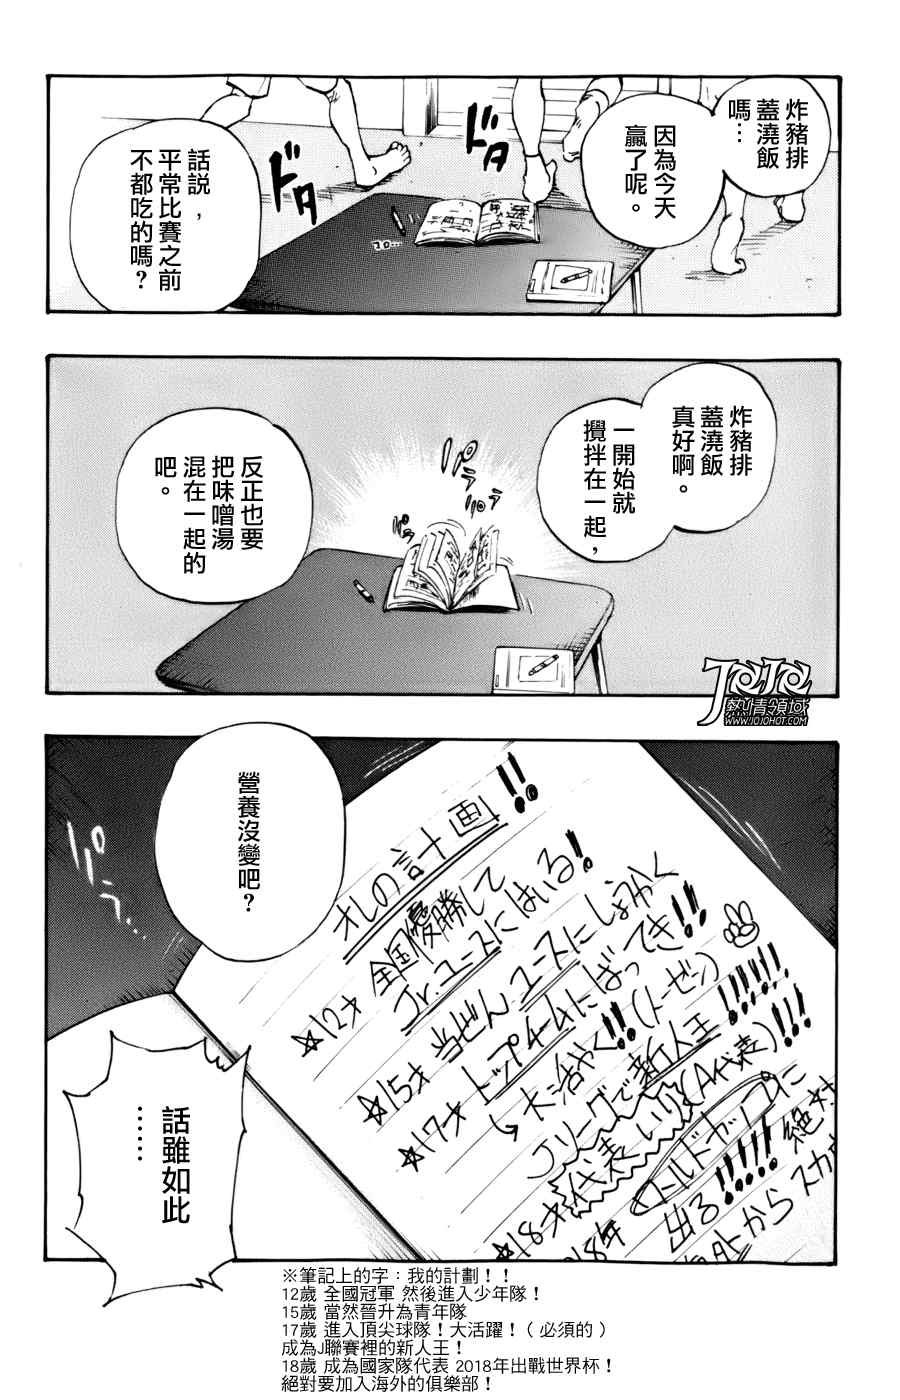 炸豬排
蓋澆飯
嗎…
因為今天
贏了呢。
ドタ
ドタ
話説，
平常比賽之前
不都吃的嗎？
コロ…
炸豬排
蓋澆飯
真好啊。
一開始就
攪拌在一起，
反正也要
把味噌湯
混在一起的
吧。
パラ
パラ
JOJO
熱情領域
WWW.JOJOHOT.COM
營養沒變吧？
パラ
オレの計画!!
☆12才 全国優勝して
Jr.ユースにはいる！
☆15才 当ぜんユースにしょうかく
☆17才 トップチームにばってき!!
→大活やく!!(トーゼン)
Jリーグで新人王!!!!!!
☆18才 代表いり(A代表)!!!
18年 ワールドカップに
出る!!!!! 絶対
海外からスカ
話雖如此
……
※筆記上的字：我的計劃！！
12歲 全國冠軍 然後進入少年隊！
15歲 當然晉升為青年隊
17歲 進入頂尖球隊！大活躍！（必須的）
成為J聯賽裡的新人王！
18歲 成為國家隊代表 2018年出戰世界杯！
絕對要加入海外的俱樂部！